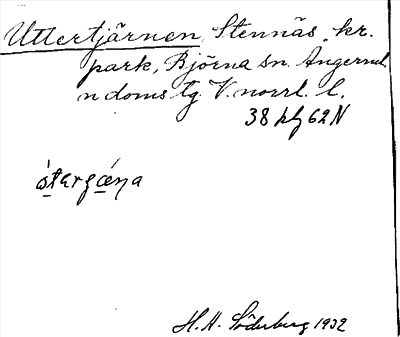 Uttertjärnen, Stennäs kr.
park, Björna sn. Ångerml.
n domstg V. norrl. l.
38 hg 62 N
H. H. Söderberg 1932